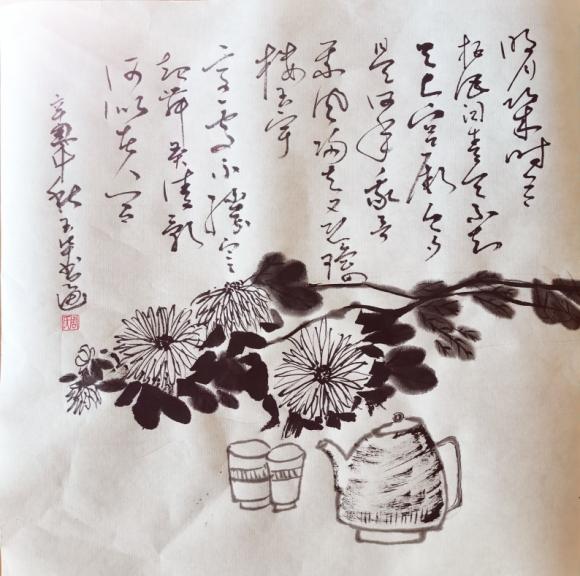 明月几时有
把酒问青天不知
天上宫阙今夕
是何年我欲
乘风归去又恐琼
楼玉宇
高处不胜寒
起舞弄清影
何似在人间
辛丑中秋